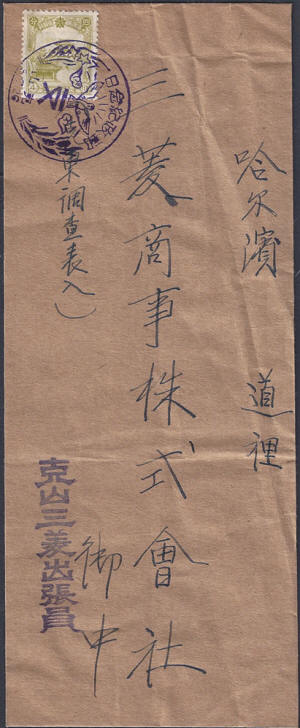 哈尔濱 道裡
三菱商事株式會社
御中
東調查表入)
克山三菱出張員